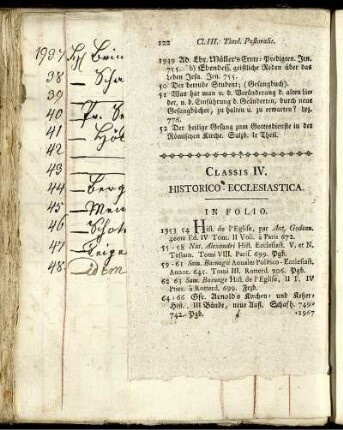 1937 Hz Brin
38 — Scha
39 —
40 — Pr. Se
41 — Höl
42 —
43 —
44 — Berg
45 — Mein
46 — Schot
47 —
48 — Idem
122 Cl. III. Theol. Pastoralis.
1949 Ad. Ehr. Müller's Ernte-Predigten. Jen.
755. b) Ebendess. geistliche Reden über das
Leben Jesu. Jen. 755.
50 Der betende Student; (Gesangbuch).
51 Was hat man v. d. Veränderung d. alten Lie-
der, u. d. Einführung d. Geänderten, durch neue
Gesangbücher, zu halten u. zu erwarten? Lpz.
776.
52 Der heilige Gesang zum Gottesdienste in der
Römischen Kirche. Salzb. 1r Theil.
CLASSIS IV.
HISTORICO-ECCLESIASTICA.
IN FOLIO.
1953 54 Hist. de l'Eglise, par Ant. Godeau
Ed. IV Tom. II Voll. à Paris 672.
55-58 Nat. Alexandri Hist. Ecclesiast. V. et N.
Testam. Tomi VIII. Paris. 699. Pgb.
59-61 Sam. Basnagii Annales Politico-Ecclesiast.
Annor. 645. Tomi III. Roterd. 706. Pgb.
62 63 Sam. Basnage Hist. de l'Eglise, II T. IV
Pties. à Roterd. 699. Frzb.
64-66 Gfr. Arnold's Kirchen- und Ketzer-
Hist., III Bände, neue Aufl. Schafh. 740-
742. Pgb. 1967